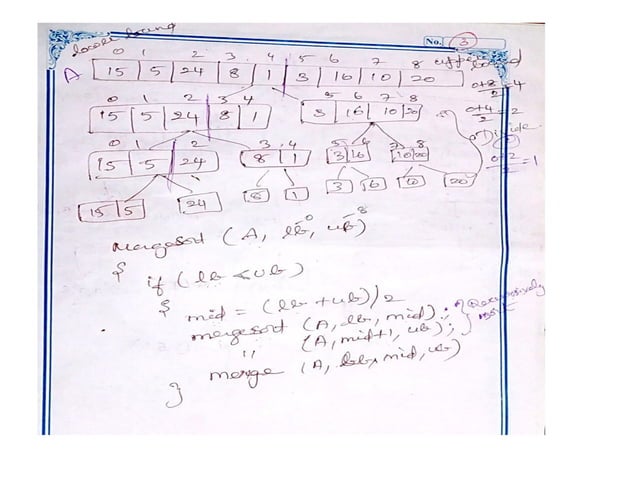 No. 3
lower bound
0 1 2 3 4 5 6 7 8 upper bound
A 15 5 24 8 1 3 16 10 20
0+8/2 = 4
0 1 2 3 4 5 6 7 8
15 5 24 8 1 3 16 10 20
0+4/2 = 2
Divide
0 1 2 3 4 5 6 7 8
15 5 24 8 1 3 16 10 20
0+2/2 = 1
15 5 24 8 1 3 16 10 20
mergesort (A, lb, ub)
0 8
{ if (lb < ub)
{ mid = (lb + ub)/2
mergesort (A, lb, mid); } Recursively
" (A, mid+1, ub);
merge (A, lb, mid, ub)
}